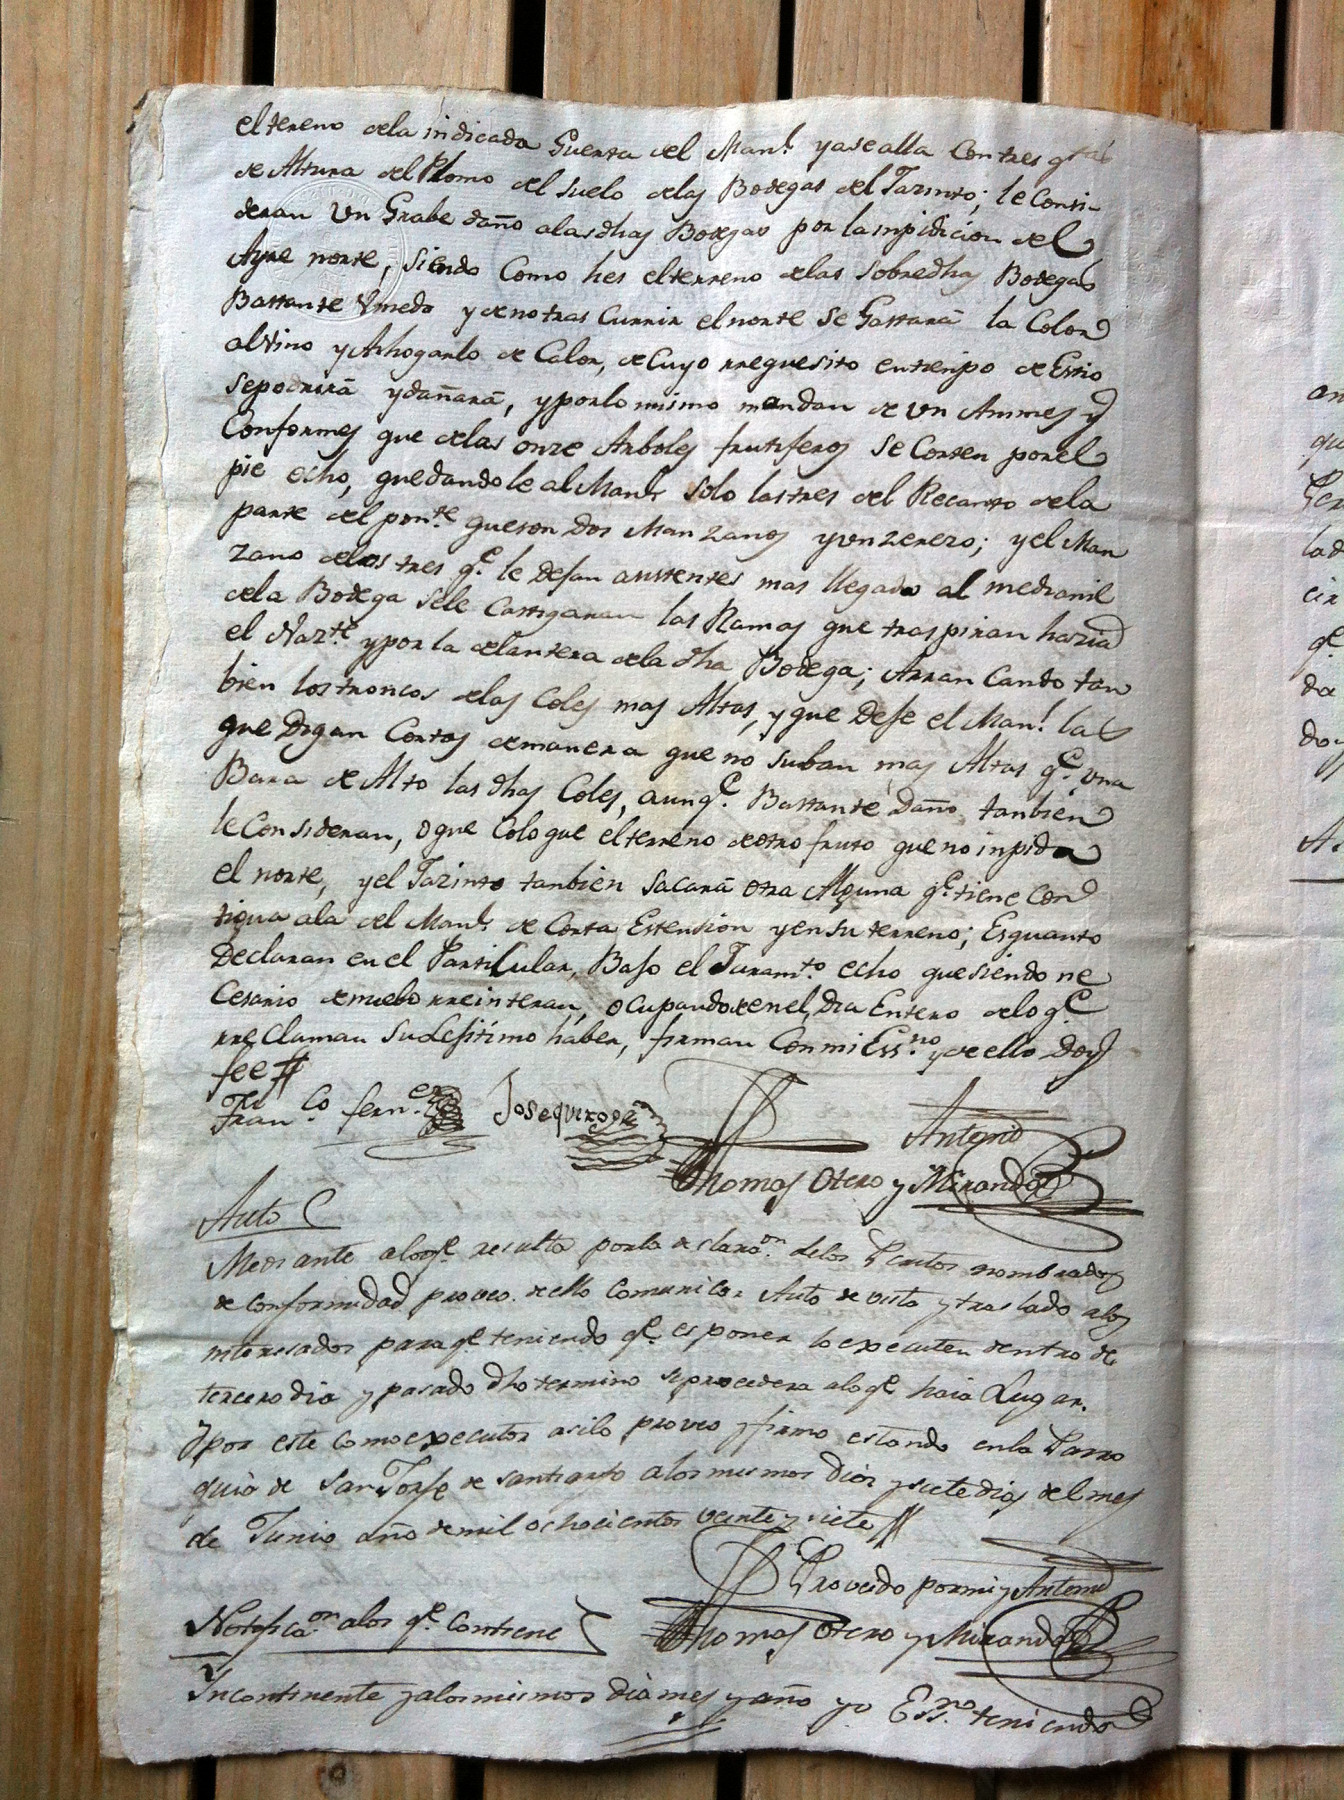 el tereno dela indicada Guerta del Man.l yase alla Con tres q.tas
de Altura del Plomo del suelo delas Bodegas del Jazinto; le Consi-
deran Un Grabe daño alas dhas Bodegas por la inpidicion del
Ayre norte, siendo Como hes el terreno delas sobredhas Bodegas
Bastante Umedo y de no tras Currir el norte se Gastará la Color
al Vino y Ahogarlo de Calor, de Cuyo rrequesito en tienpo de Estio
se podrirá y dañará, y por lo mismo mandan de Un Animes y
Conformes que delas onze Arboles frutiferos se Corten por el
pie echo, quedandole al Man.l solo las tres del Recanto dela
parte del pon.te que son Dos Manzanos y un zerezo; y el Man
zano delos tres q.e le Dejan asistentes mas llegado al medianil
dela Bodega se le Castigaran las Ramas que traspiran hazia
el Naz.te y por la delantera dela dha Bodega; Arran Cando tan
bien los troncos delas Coles mas Altas, y que Deje el Man.l las
que Digan Cortas de manera que no suban mas Altas q.e una
Bara de Alto las dhas Coles, aunq.e Bastante Daño tanbien
le Consideran, o que Coloque el terreno de otro fruto que no inpida
el norte, y el Jazinto tanbien sacará otra Alguna q.e tiene Con
tigua ala del Man.l de Corta Estension y en su terreno; Es quanto
Declaran en el Particular, Bajo el Juram.to echo que siendo ne
Cesario de nuebo rreinteran, ocupandose en el, Dia Entero delo q.e
rreclaman su Lejitimo haber, firman Con mi Ess.no y de ello Doy
fee
Fran.co fern.ez Jose quiroga
Antemi
Thomas Otero y Miranda
Auto
Mediante alo q.e resulta por la declaraz.on delos Peritos nombrados
de conformidad proveo. de ello comunica Auto de visto y traslado alos
interesados para q.e teniendo q.e esponer lo executen dentro de
tercero dia y pasado dho termino se procedera alo q.e haia Lugar.
Y por este como executor asi lo proveo y firmo estando en la Parro
quia de San Jorje de santiorto alos mismos Diez y siete dias del mes
de Junio año de mil ochocientos veinte y siete
Proveido por mi y Antemi
Thomas Otero y Miranda
Notifica.on alos q.e contiene
Yncontinente y alos mismos dia mes y año yo Ess.no teniendo